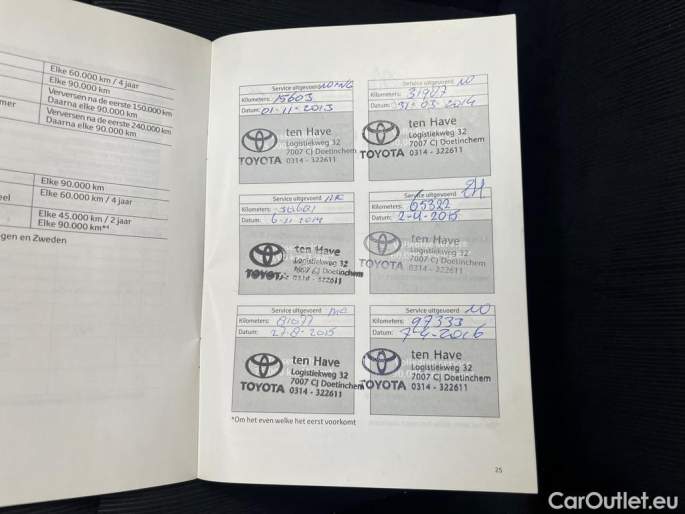 Elke 60.000 km / 4 jaar
Elke 90.000 km
Verversen na de eerste 150.000 km
Daarna elke 90.000 km
mer
Verversen na de eerste 240.000 km
Daarna elke 90.000 km
Elke 90.000 km
eel
Elke 60.000 km / 4 jaar
Elke 45.000 km / 2 jaar
Elke 90.000 km*¹
gen en Zweden
Service uitgevoerd
Kilometers: 15603
Datum: 01-11-2013
ten Have
Logistiekweg 32
7007 CJ Doetinchem
TOYOTA 0314 - 322611
Service uitgevoerd
Kilometers: 31907
Datum: 31-03-2014
ten Have
Logistiekweg 32
7007 CJ Doetinchem
TOYOTA 0314 - 322611
Service uitgevoerd
Kilometers:
Datum: 6-11-2014
ten Have
Logistiekweg 32
7007 CJ Doetinchem
TOYOTA 0314 - 322611
Service uitgevoerd
Kilometers: 65322
Datum: 2-4-2015
ten Have
Logistiekweg 32
7007 CJ Doetinchem
TOYOTA 0314 - 322611
Service uitgevoerd
Kilometers:
Datum: 27-8-2015
ten Have
Logistiekweg 32
7007 CJ Doetinchem
TOYOTA 0314 - 322611
Service uitgevoerd
Kilometers: 97333
Datum: 7-4-2016
ten Have
Logistiekweg 32
7007 CJ Doetinchem
TOYOTA 0314 - 322611
*Om het even welke het eerst voorkomt
25
CarOutlet.eu